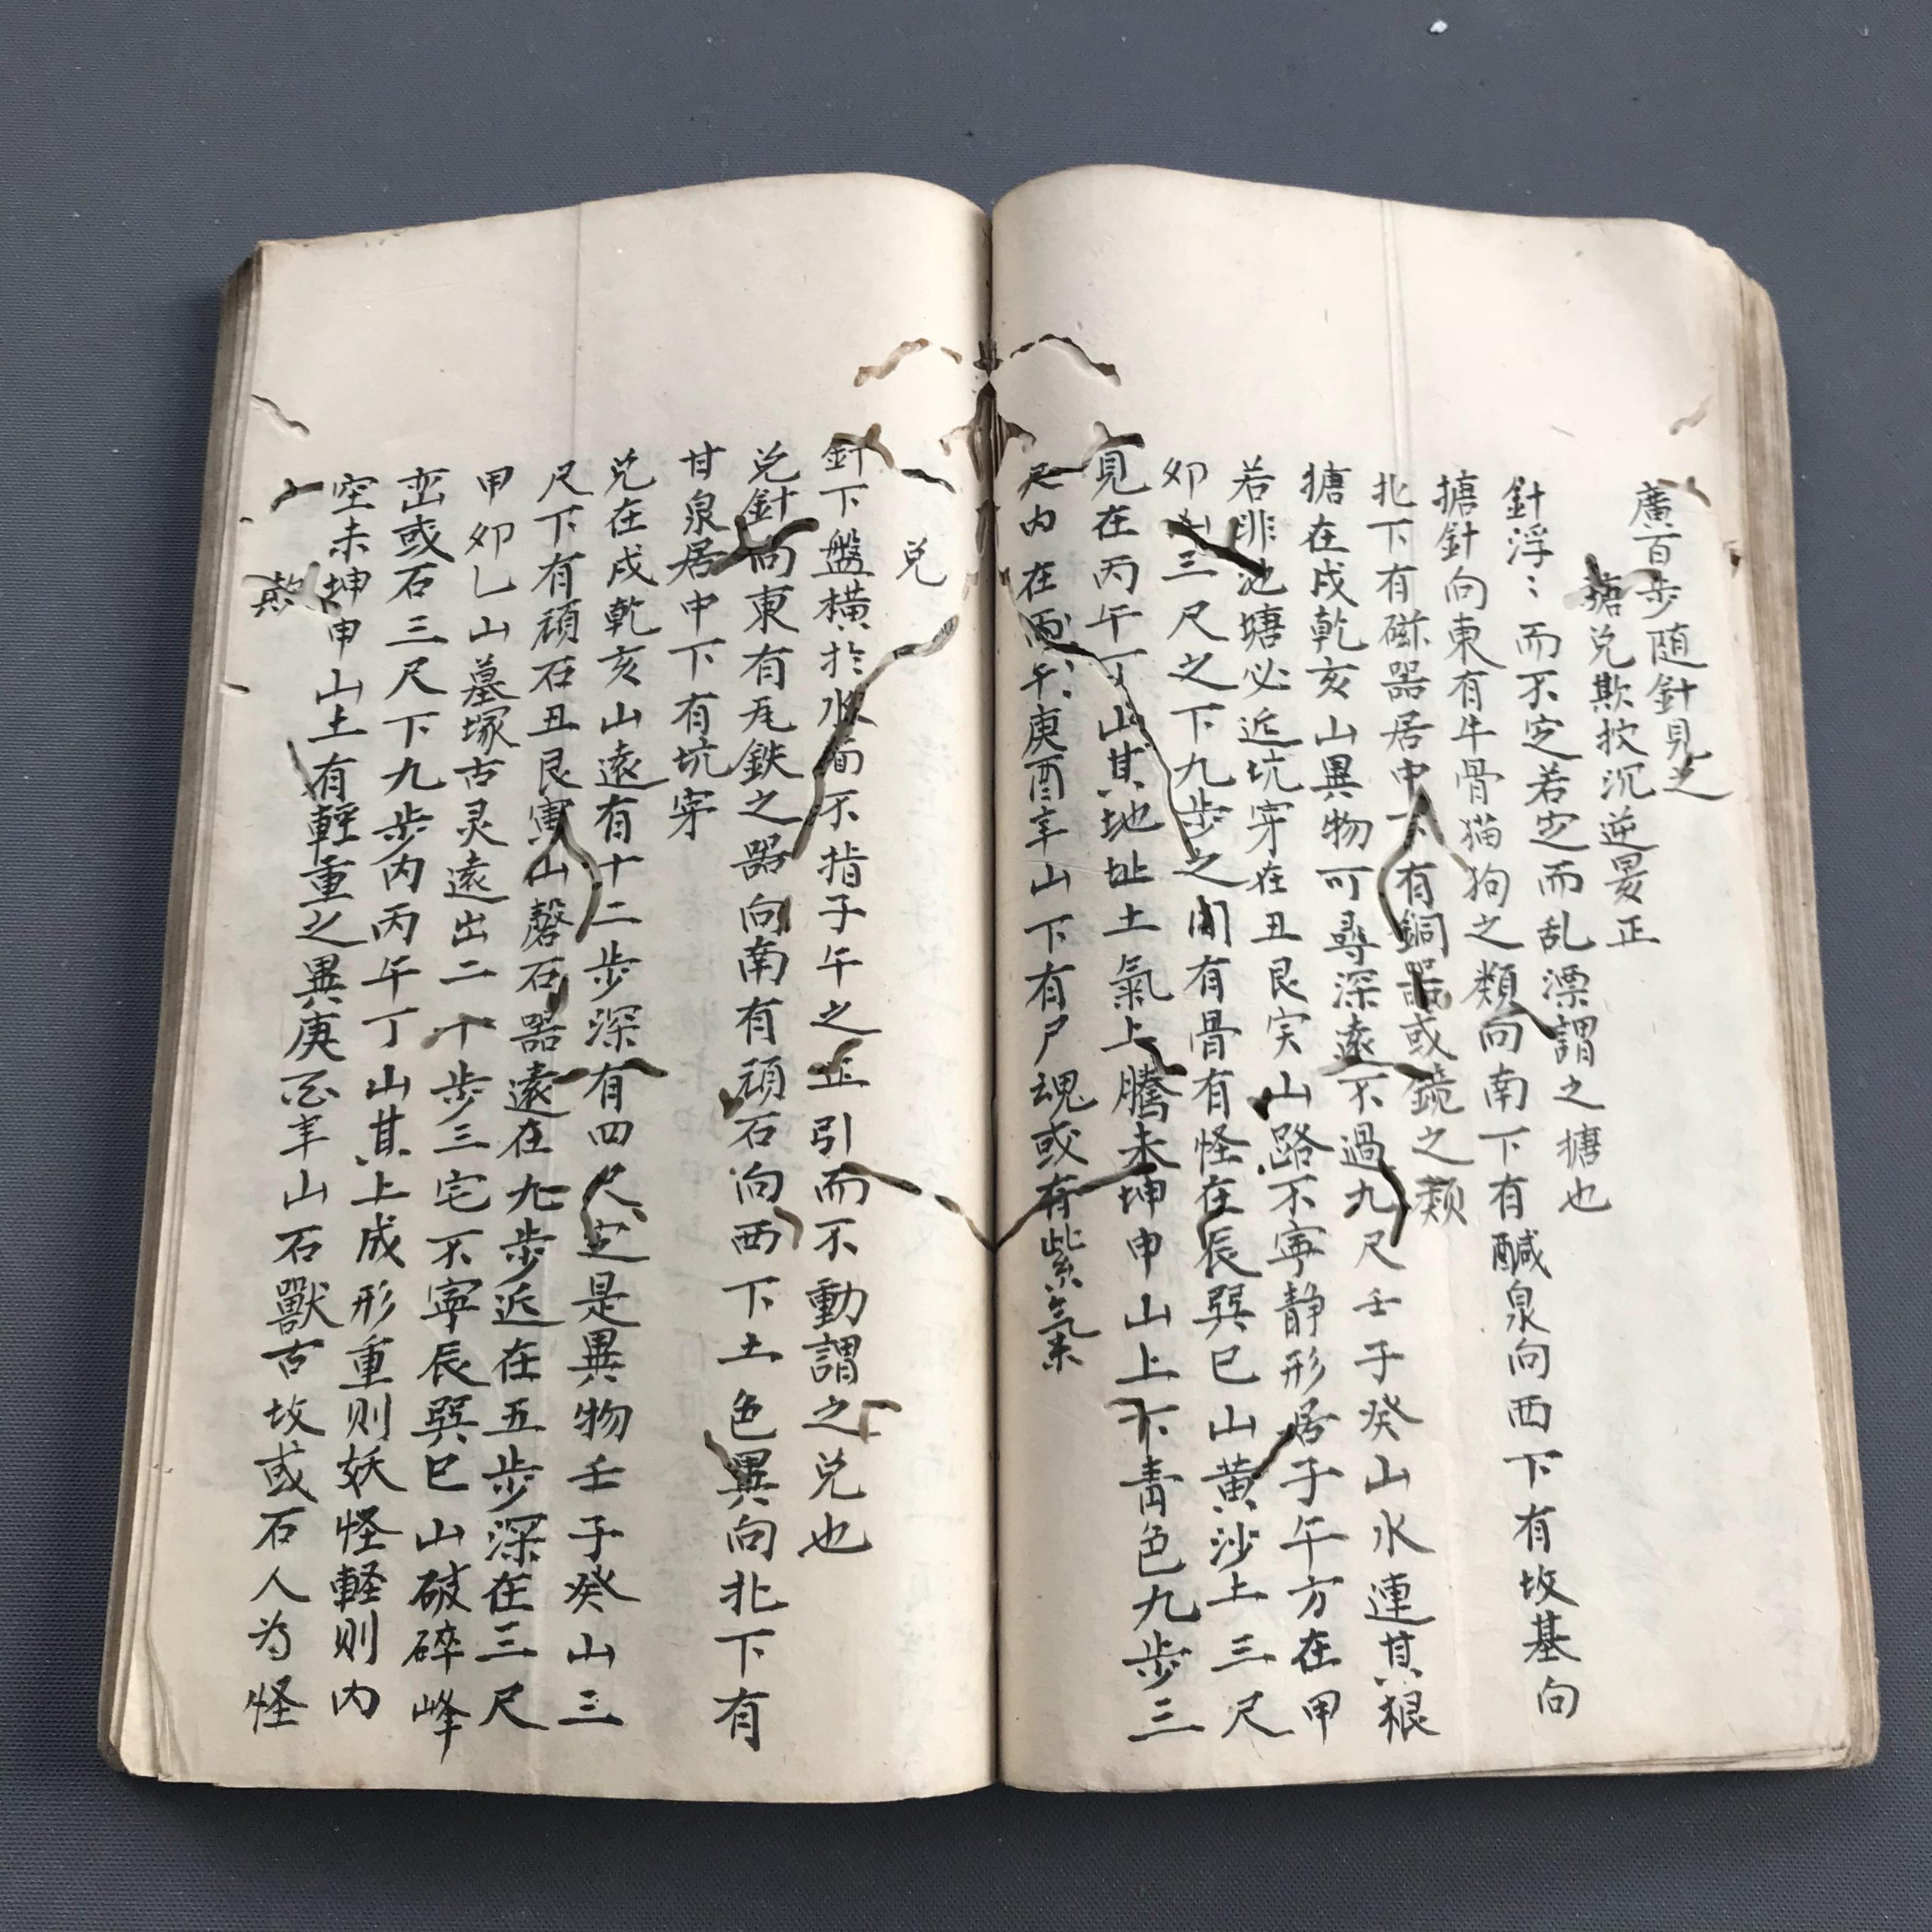 廣百步随針見之
搪兌欺扻沉逆晏正
針浮〻而不定若定而乱漂謂之搪也
搪針向東有牛骨猫狗之類向南下有醎泉向西下有坟基向
北下有磁器居中下有銅器或鏡之類
搪在戌乾亥山異物可尋深遠不過九尺壬子癸山水連其根
若非池塘必近坑穽在丑艮寅山路不寧静形居子午方在甲
卯山三尺之下九步之間有骨有怪在辰巽巳山黄沙上三尺
見在丙午丁山其地址土氣上騰未坤申山上下青色九步三
尺内在庚酉辛山下有尸魂或有紫氣
兌
針下盤横於水面不指子午之正引而不動謂之兌也
兌針向東有瓦鉄之器向南有頑石向西下土色異向北下有
甘泉居中下有坑穽
兌在戌乾亥山遠有十二步深有四尺定是異物壬子癸山三
尺下有頑石丑艮寅山磬石器遠在九步近在五步深在三尺
甲卯乙山墓塚古灵遠出二十步三宅不寧辰巽巳山破碎峰
峦或石三尺下九步内丙午丁山其上成形重则妖怪軽则内
空未坤申山土有輕重之異庚酉辛山石獸古坟或石人为怪
欺